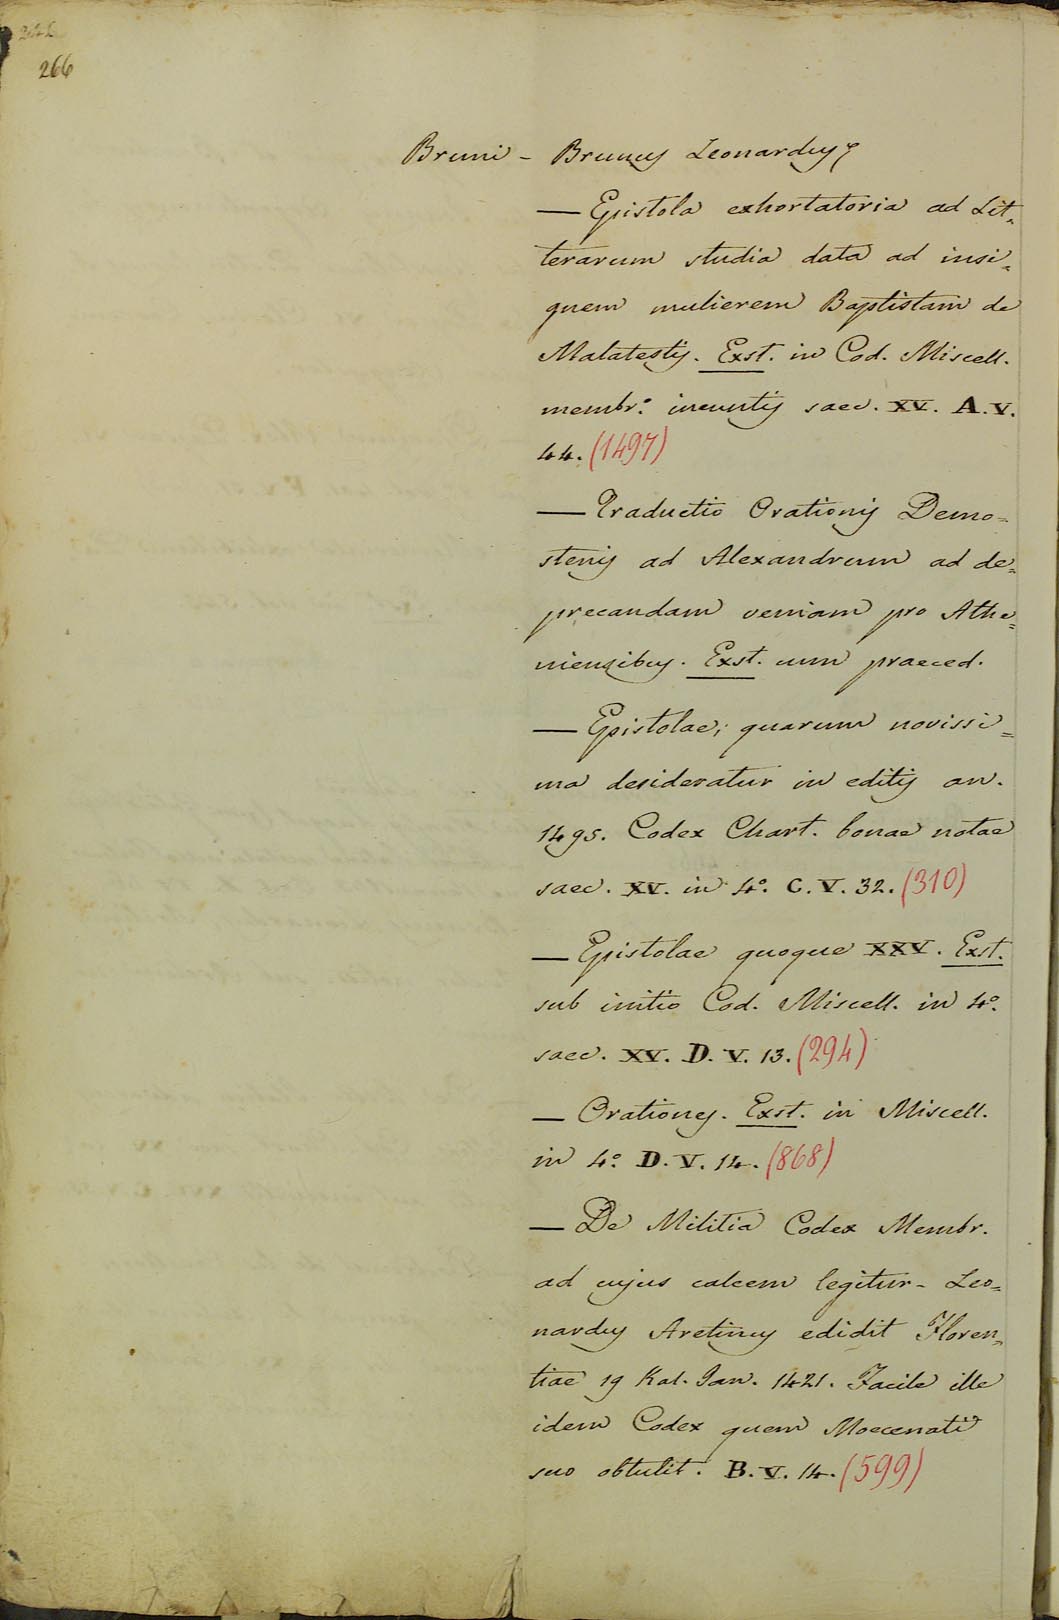 266
Bruni - Brunus Leonardus
— Epistola exhortatoria ad Lit=
terarum studia data ad insi=
gnem mulierem Baptistam de
Malatestis. Exst. in Cod. Miscell.
membr.º ineuntis saec. XV. A.V.
44. (1497)
— Traductio Orationis Demo=
stenis ad Alexandrum ad de=
precandam veniam pro Athe=
niensibus. Exst. cum praeced.
— Epistolae; quarum novissi=
ma desideratur in editis an.
1495. Codex Chart. bonae notae
saec. XV. in 4º. C. V. 32. (310)
— Epistolae quoque XXV. Exst.
sub initio Cod. Miscell. in 4º.
saec. XV. D. V. 13. (294)
— Orationes. Exst. in Miscell.
in 4º. D. V. 14. (868)
— De Militia Codex Membr.
ad cujus calcem legitur - Leo=
nardus Aretinus edidit Floren=
tiae 19 Kal. Jan. 1421. Facile ille
idem Codex quem Moecenati
suo obtulit. B. V. 14. (599)